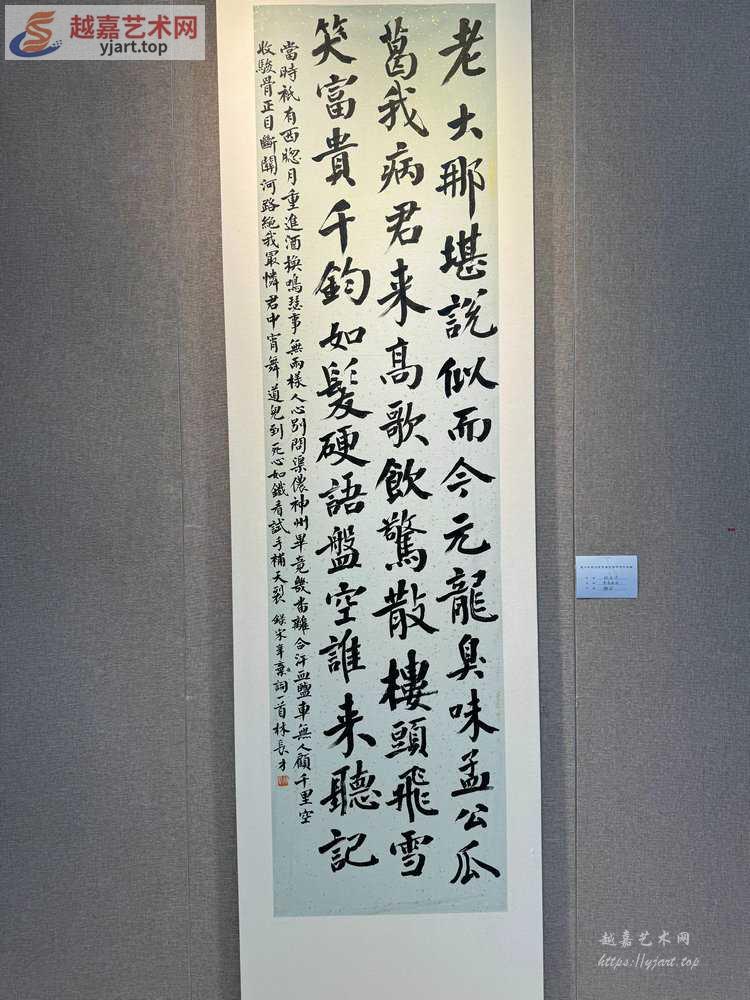 越嘉艺术网
yjart.top
老大那堪說似而今元龍臭味孟公瓜
葛我病君来高歌飲驚散樓頭飛雪
笑富貴千鈞如髮硬語盤空誰来聽記
當時祇有西牕月重進酒換鳴瑟事無兩樣人心別問渠儂神州畢竟幾番離合汗血鹽車無人顧千里空
收駿骨正目斷關河路絶我最憐君中宵舞道兒到死心如鐵看試手補天裂 錄宋辛棄詞一首林長才
越嘉艺术网
https://yjart.top